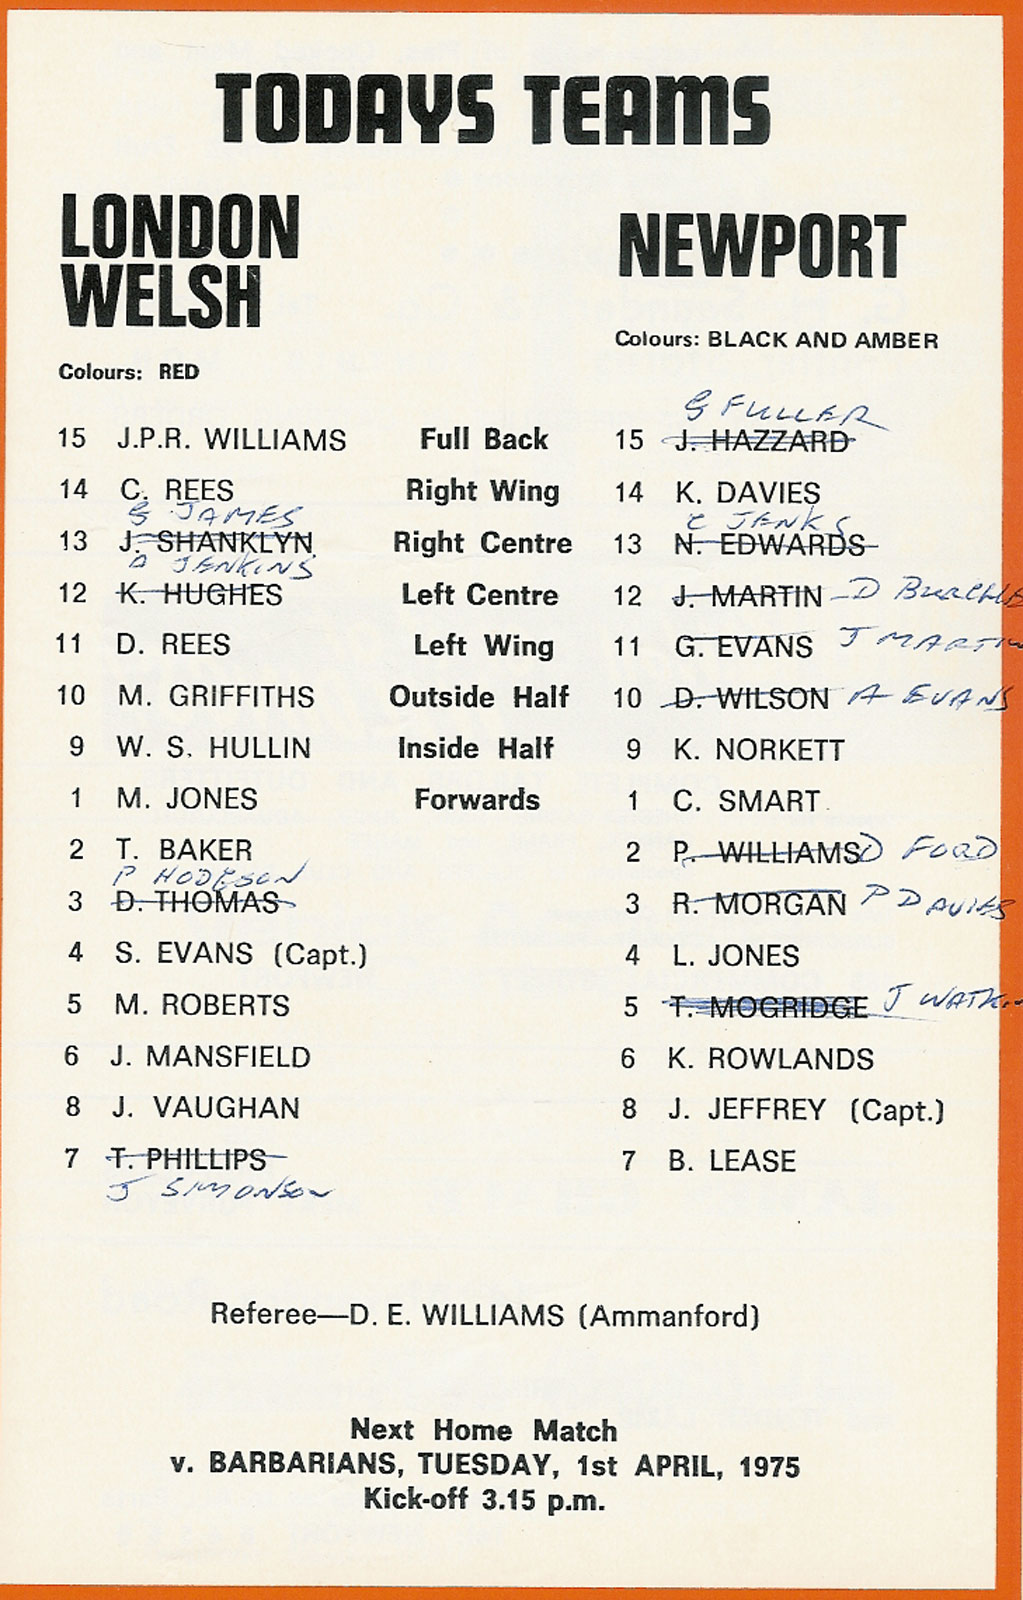 TODAYS TEAMS
LONDON
WELSH
Colours: RED
NEWPORT
Colours: BLACK AND AMBER
G FULLER
15 J.P.R. WILLIAMS Full Back 15 J. HAZZARD
14 C. REES Right Wing 14 K. DAVIES
G JAMES C JENKS
13 J. SHANKLYN Right Centre 13 N. EDWARDS
D JENKINS
12 K. HUGHES Left Centre 12 J. MARTIN – D
11 D. REES Left Wing 11 G. EVANS J MARTIN
10 M. GRIFFITHS Outside Half 10 D. WILSON A EVANS
9 W. S. HULLIN Inside Half 9 K. NORKETT
1 M. JONES Forwards 1 C. SMART
2 T. BAKER 2 P. WILLIAMS D FORD
P HODGSON
3 D. THOMAS 3 R. MORGAN P DAVIES
4 S. EVANS (Capt.) 4 L. JONES
5 M. ROBERTS 5 T. MOGRIDGE J
6 J. MANSFIELD 6 K. ROWLANDS
8 J. VAUGHAN 8 J. JEFFREY (Capt.)
7 T. PHILLIPS 7 B. LEASE
J SIMONSON
Referee—D. E. WILLIAMS (Ammanford)
Next Home Match
v. BARBARIANS, TUESDAY, 1st APRIL, 1975
Kick-off 3.15 p.m.